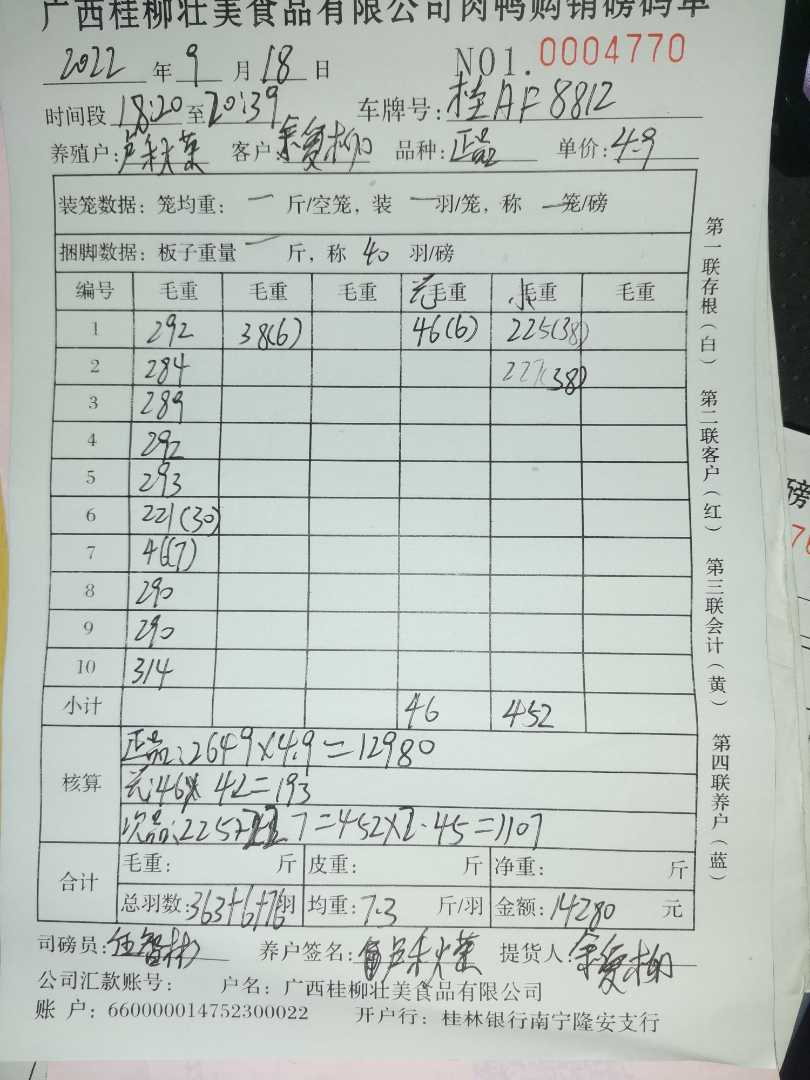 广西桂柳壮美食品有限公司肉鸭购销磅码单
2022 年 9 月 18 日 NO1. 0004770
时间段 18:20 至 20:39 车牌号: 桂AF8812
养殖户: 卢秋菜 客户: 品种: 正品 单价: 4.9
装笼数据: 笼均重: 一 斤/空笼, 装 一 羽/笼, 称 一 笼/磅
捆脚数据: 板子重量 一 斤, 称 40 羽/磅
编号 毛重 毛重 毛重 毛重 毛重 毛重
1 292 38(6) 46(6) 225(38)
2 284 227(38)
3 289
4 292
5 293
6 221(30)
7 46(7)
8 290
9 290
10 314
小计 46 452
核算
正品:2649×4.9=12980
46× 4.2=193
次品:225+227=452×2.45=1107
合计 毛重: 斤 皮重: 斤 净重: 斤
总羽数: 363+6+76 羽 均重: 7.3 斤/羽 金额: 14280 元
司磅员: 伍智彬 养户签名: 卢秋菜 提货人:
公司汇款账号: 户名: 广西桂柳壮美食品有限公司
账户: 660000014752300022 开户行: 桂林银行南宁隆安支行
第一联存根(白) 第二联客户(红) 第三联会计(黄) 第四联养户(蓝)
磅